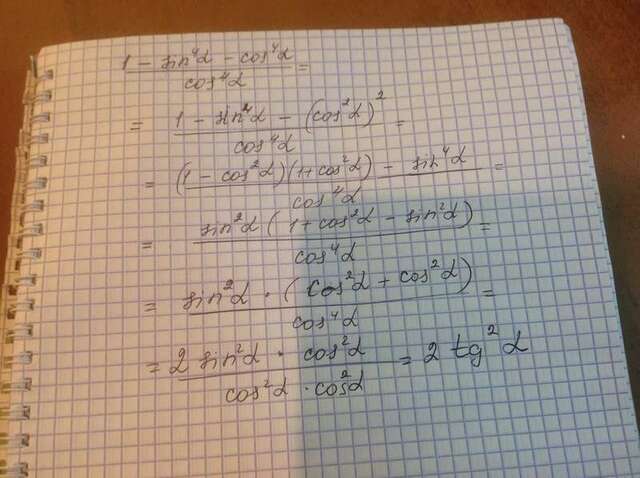 (1 - sin⁴α - cos⁴α) / cos⁴α =
= (1 - sin⁴α - (cos²α)²) / cos⁴α =
= ((1 - cos²α)(1 + cos²α) - sin⁴α) / cos⁴α =
= sin²α (1 + cos²α - sin²α) / cos⁴α =
= sin²α · (cos²α + cos²α) / cos⁴α =
= 2 sin²α · cos²α / cos²α · cos²α = 2 tg²α